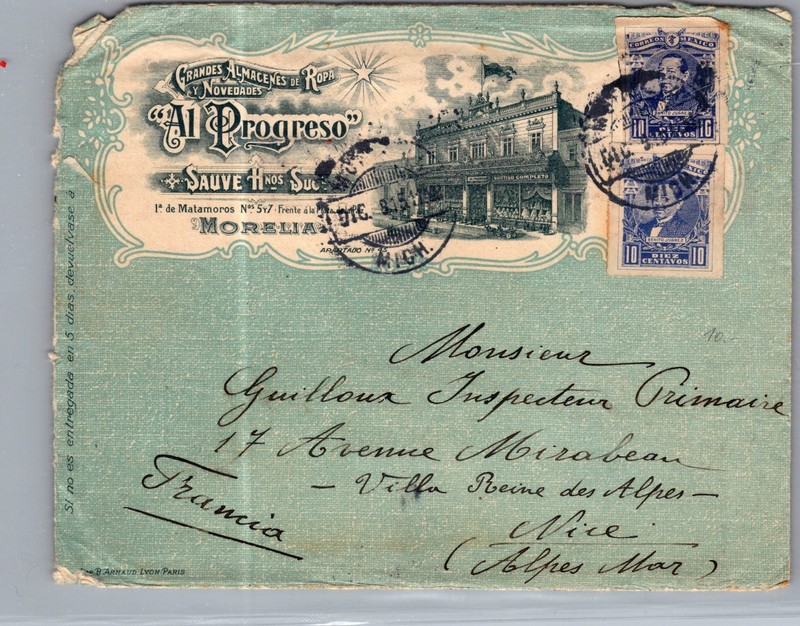 GRANDES ALMACENES DE ROPA
Y NOVEDADES
"Al Progreso"
SAUVE HNOS
1ª de Matamoros Nos 5 y 7 - Frente á la
MORELIA
APARTADO Nº
SUR SURTIDO COMPLETO
CORREOS MEXICO
BENITO JUAREZ
10 10
DIC.
MICH.
BENITO JUAREZ
10 DIEZ CENTAVOS 10
DIC.
MICH.
10.
Monsieur
Guilloux Inspecteur Primaire
17 Avenue Mirabeau
- Villa Reine des Alpes -
Nice
(Alpes Mar)
Francia
Si no es entregada en 5 días, devuelvase á
B. ARNAUD LYON PARIS